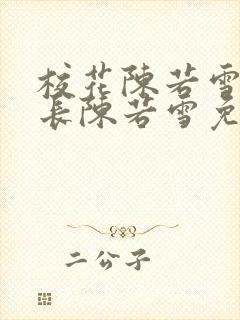 校花陳若雪
長陳若雪免
二公子